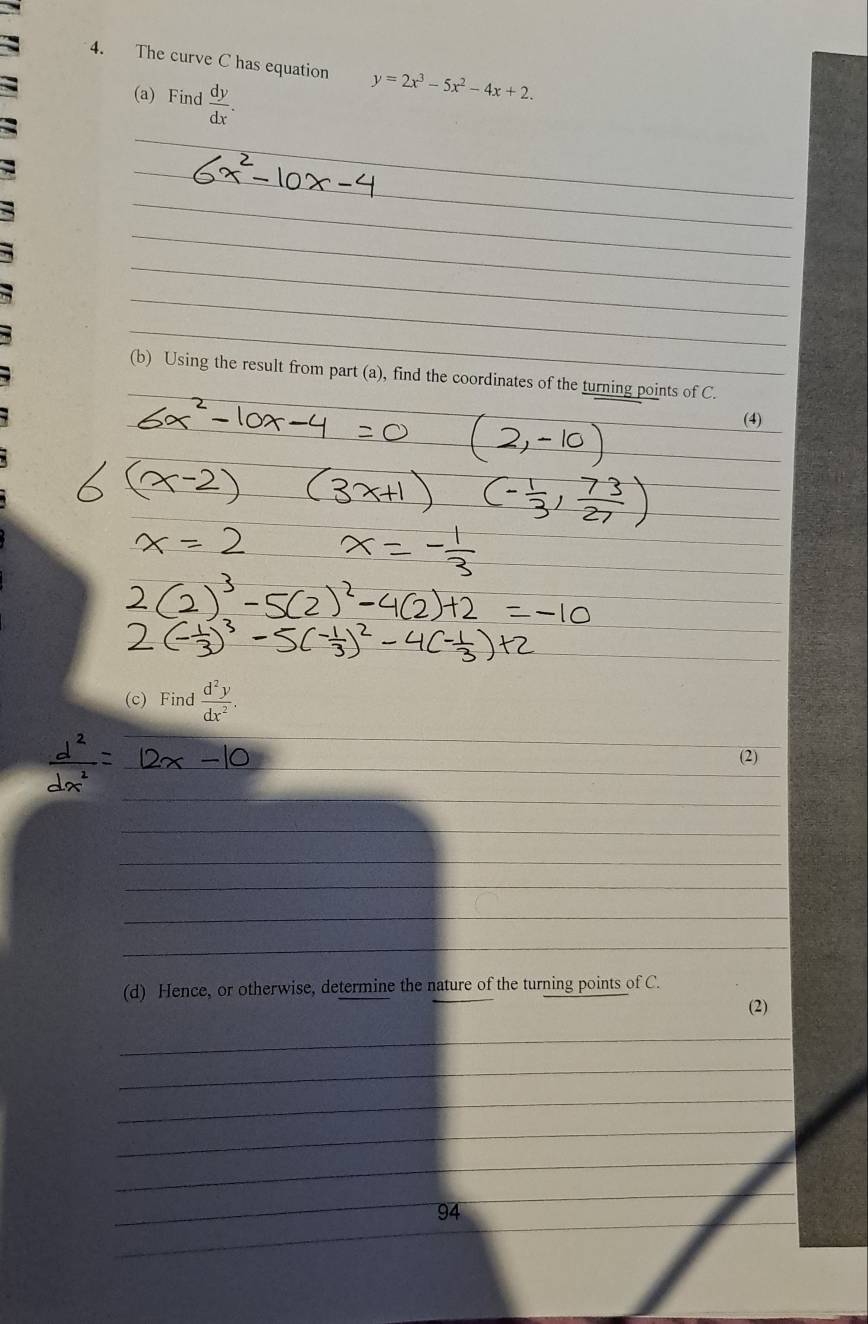 4. The curve C has equation y = 2x³ − 5x² − 4x + 2.
(a) Find dy/dx.
6x² - 10x - 4
(b) Using the result from part (a), find the coordinates of the turning points of C.
(4)
6x² - 10x - 4 = 0 (2, -10)
6 (x - 2) (3x + 1) (-1/3, 73/27)
x = 2 x = -1/3
2(2)³ - 5(2)² - 4(2) + 2 = -10
2(-1/3)³ - 5(-1/3)² - 4(-1/3) + 2
(c) Find d²y/dx².
(2)
d²/dx² = 12x - 10
(d) Hence, or otherwise, determine the nature of the turning points of C.
(2)
94